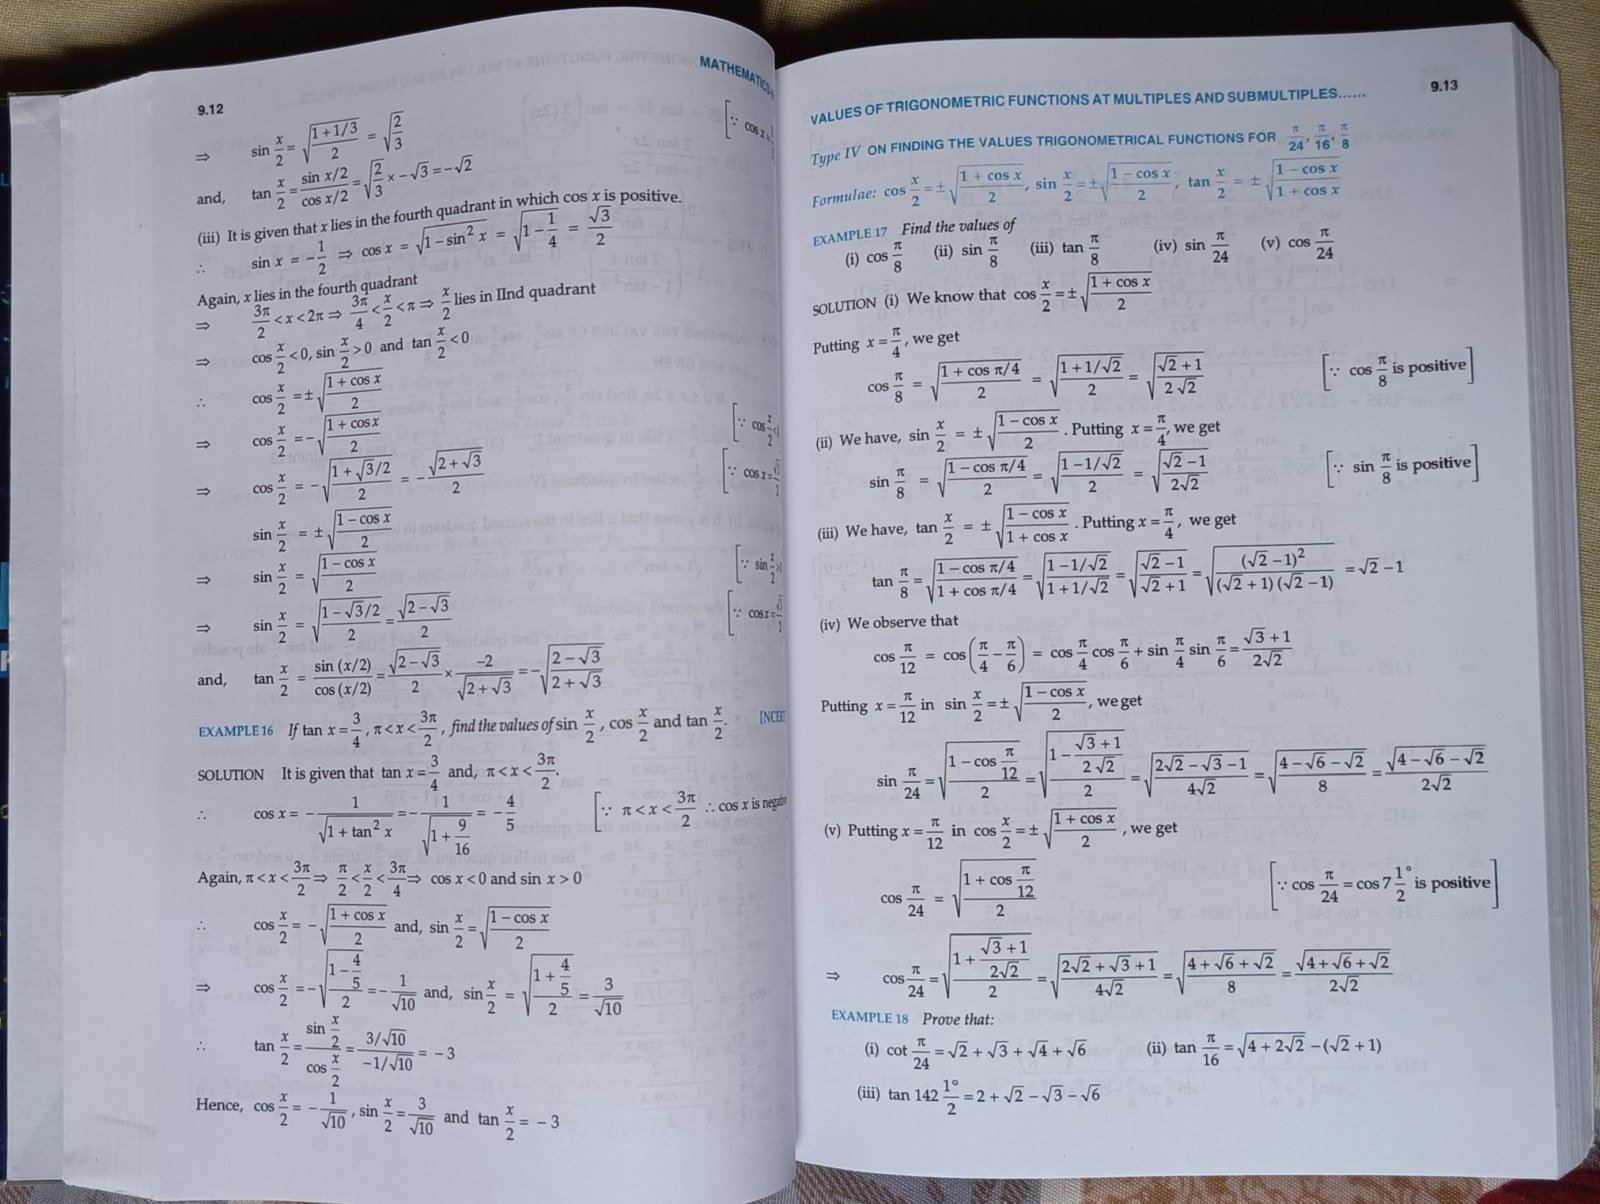 9.12
MATHEMATICS
⇒ sin x/2 = √((1 + 1/3)/2) = √(2/3)
and, tan x/2 = (sin x/2)/(cos x/2) = √(2/3) × −√3 = −√2
(iii) It is given that x lies in the fourth quadrant in which cos x is positive.
∴ sin x = −1/2 ⇒ cos x = √(1 − sin² x) = √(1 − 1/4) = √3/2
Again, x lies in the fourth quadrant
⇒ 3π/2 < x < 2π ⇒ 3π/4 < x/2 < π ⇒ x/2 lies in IInd quadrant
⇒ cos x/2 < 0, sin x/2 > 0 and tan x/2 < 0
∴ cos x/2 = ± √((1 + cos x)/2)
⇒ cos x/2 = − √((1 + cos x)/2) [∵ cos x/2 <
⇒ cos x/2 = − √((1 + √3/2)/2) = − √(2 + √3)/2 [∵ cos x =
sin x/2 = ± √((1 − cos x)/2)
⇒ sin x/2 = √((1 − cos x)/2) [∵ sin x/2 >
⇒ sin x/2 = √((1 − √3/2)/2) = √(2 − √3)/2 [∵ cos x =
and, tan x/2 = sin (x/2)/cos (x/2) = √(2 − √3)/2 × −2/√(2 + √3) = − √((2 − √3)/(2 + √3))
EXAMPLE 16 If tan x = 3/4, π < x < 3π/2, find the values of sin x/2, cos x/2 and tan x/2. [NCERT
SOLUTION It is given that tan x = 3/4 and, π < x < 3π/2.
∴ cos x = − 1/√(1 + tan² x) = − 1/√(1 + 9/16) = − 4/5 [∵ π < x < 3π/2 ∴ cos x is negative
Again, π < x < 3π/2 ⇒ π/2 < x/2 < 3π/4 ⇒ cos x < 0 and sin x > 0
∴ cos x/2 = − √((1 + cos x)/2) and, sin x/2 = √((1 − cos x)/2)
⇒ cos x/2 = − √((1 − 4/5)/2) = − 1/√10 and, sin x/2 = √((1 + 4/5)/2) = 3/√10
∴ tan x/2 = (sin x/2)/(cos x/2) = (3/√10)/(−1/√10) = − 3
Hence, cos x/2 = − 1/√10, sin x/2 = 3/√10 and tan x/2 = − 3
VALUES OF TRIGONOMETRIC FUNCTIONS AT MULTIPLES AND SUBMULTIPLES...... 9.13
Type IV ON FINDING THE VALUES TRIGONOMETRICAL FUNCTIONS FOR π/24, π/16, π/8
Formulae: cos x/2 = ± √((1 + cos x)/2), sin x/2 = ± √((1 − cos x)/2), tan x/2 = ± √((1 − cos x)/(1 + cos x))
EXAMPLE 17 Find the values of
(i) cos π/8 (ii) sin π/8 (iii) tan π/8 (iv) sin π/24 (v) cos π/24
SOLUTION (i) We know that cos x/2 = ± √((1 + cos x)/2)
Putting x = π/4, we get
cos π/8 = √((1 + cos π/4)/2) = √((1 + 1/√2)/2) = √((√2 + 1)/(2√2)) [∵ cos π/8 is positive]
(ii) We have, sin x/2 = ± √((1 − cos x)/2). Putting x = π/4, we get
sin π/8 = √((1 − cos π/4)/2) = √((1 − 1/√2)/2) = √((√2 − 1)/(2√2)) [∵ sin π/8 is positive]
(iii) We have, tan x/2 = ± √((1 − cos x)/(1 + cos x)). Putting x = π/4, we get
tan π/8 = √((1 − cos π/4)/(1 + cos π/4)) = √((1 − 1/√2)/(1 + 1/√2)) = √((√2 − 1)/(√2 + 1)) = √((√2 − 1)²/((√2 + 1)(√2 − 1))) = √2 − 1
(iv) We observe that
cos π/12 = cos (π/4 − π/6) = cos π/4 cos π/6 + sin π/4 sin π/6 = (√3 + 1)/(2√2)
Putting x = π/12 in sin x/2 = ± √((1 − cos x)/2), we get
sin π/24 = √((1 − cos π/12)/2) = √((1 − (√3 + 1)/(2√2))/2) = √((2√2 − √3 − 1)/(4√2)) = √((4 − √6 − √2)/8) = √(4 − √6 − √2)/(2√2)
(v) Putting x = π/12 in cos x/2 = ± √((1 + cos x)/2), we get
cos π/24 = √((1 + cos π/12)/2) [∵ cos π/24 = cos 7 1°/2 is positive]
⇒ cos π/24 = √((1 + (√3 + 1)/(2√2))/2) = √((2√2 + √3 + 1)/(4√2)) = √((4 + √6 + √2)/8) = √(4 + √6 + √2)/(2√2)
EXAMPLE 18 Prove that:
(i) cot π/24 = √2 + √3 + √4 + √6 (ii) tan π/16 = √(4 + 2√2) − (√2 + 1)
(iii) tan 142 1°/2 = 2 + √2 − √3 − √6